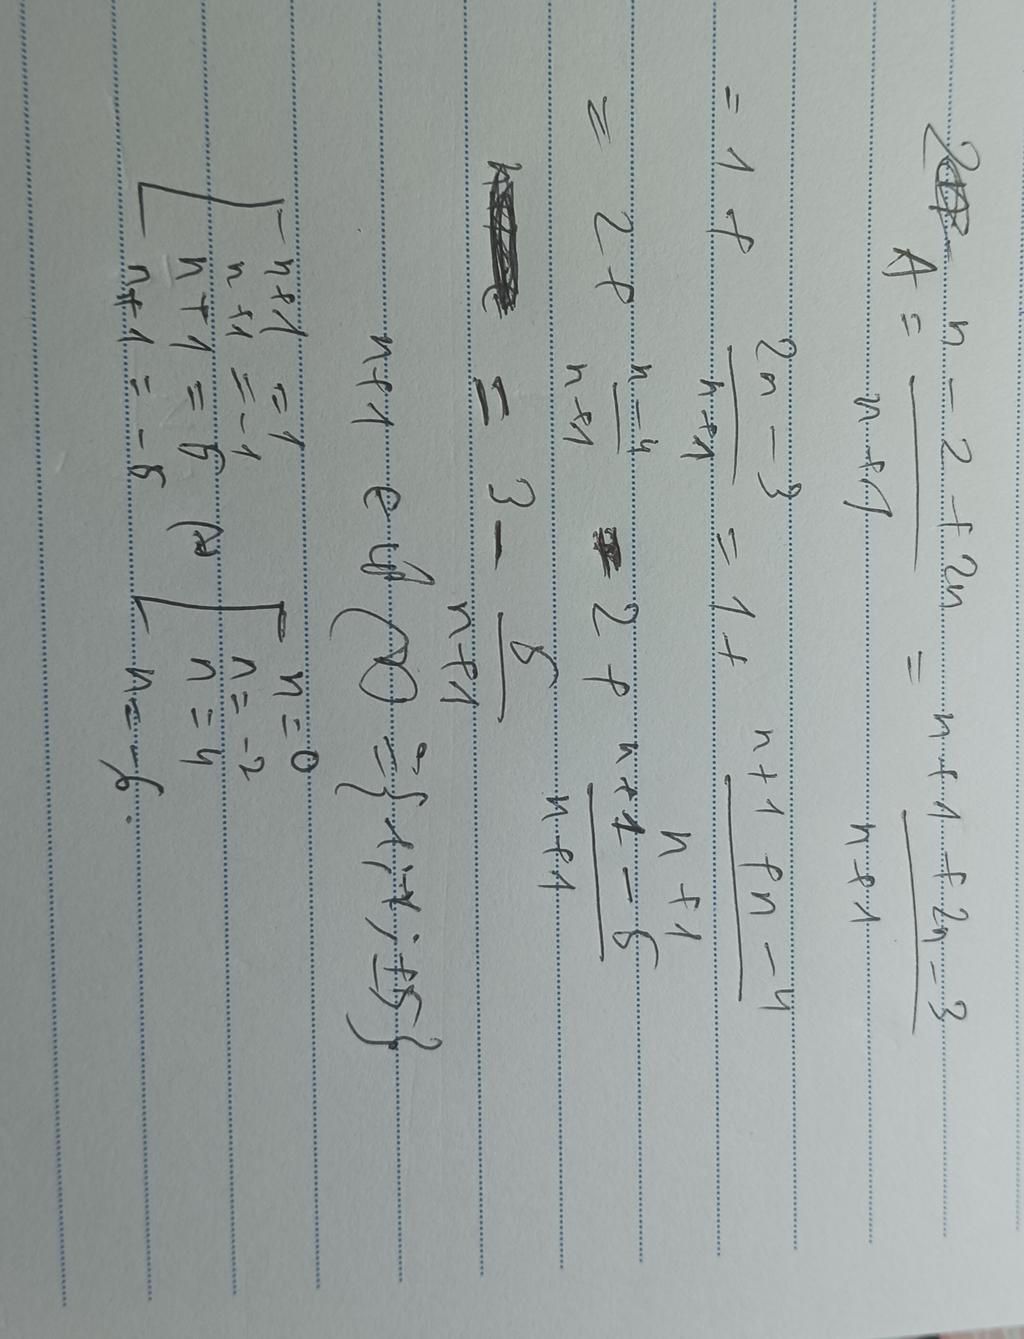 A = n - 2 + 2n / n+1 = n+1 + 2n - 3 / n+1
= 1 + 2n - 3 / n+1 = 1 + n+1 + n - 4 / n+1
= 2 + n-4 / n+1 = 2 + n+1 - 5 / n+1
= 3 - 5 / n+1
n+1 ∈ Ư
n+1 = 1 n = 0
n+1 = -1 n = -2
n+1 = 5 n = 4
n+1 = -5 n = -6.